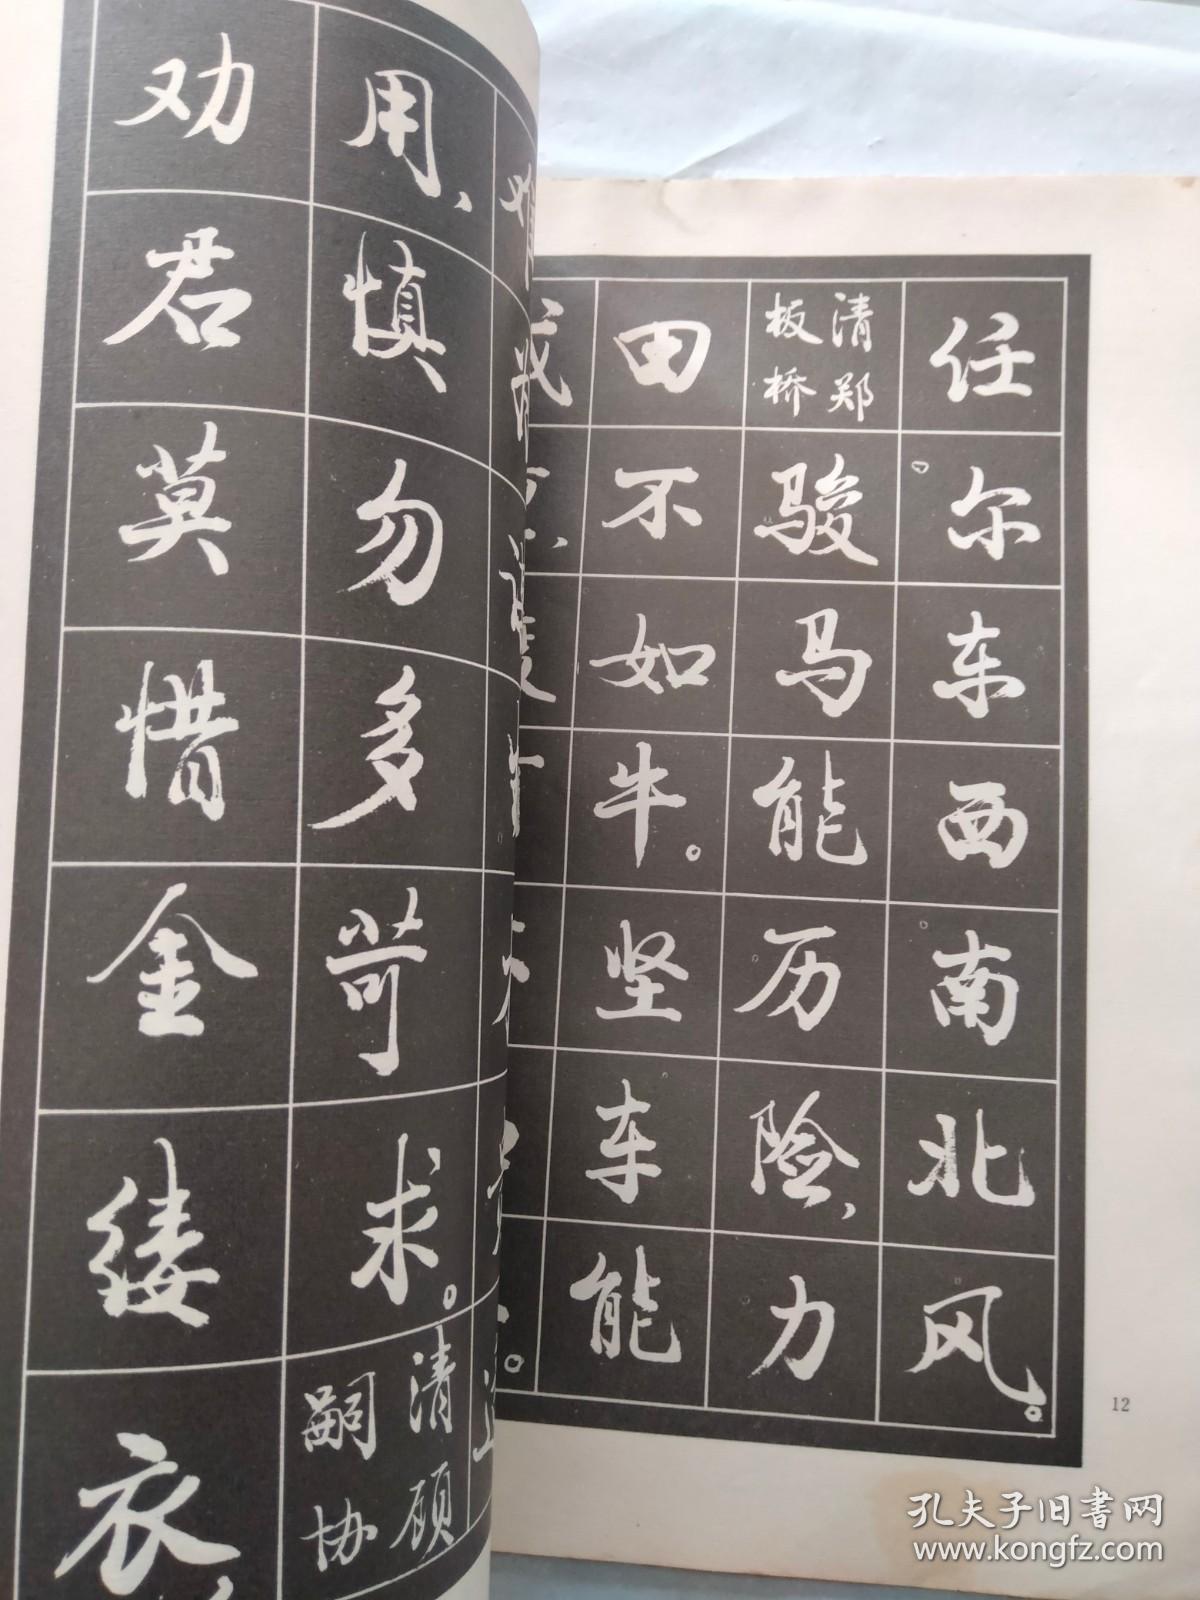 任尔东西南北风。
清郑板桥
骏马能历险、力
田不如牛。坚车能
用、慎勿多苛求。
清顾嗣协
劝君莫惜金缕衣、
12
孔夫子旧书网
www.kongfz.com